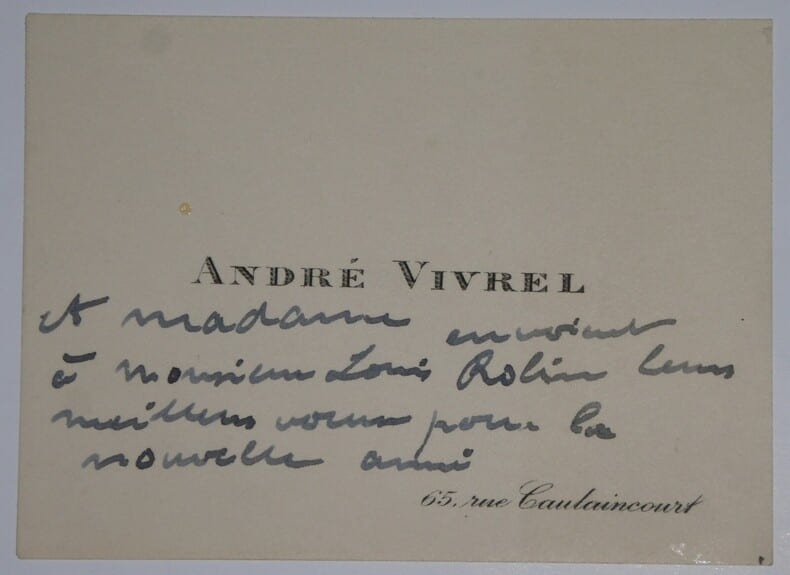 ANDRÉ VIVREL
et madame envoient
à Monsieur Louis Robin leurs
meilleurs voeux pour la
nouvelle année
65. rue Caulaincourt